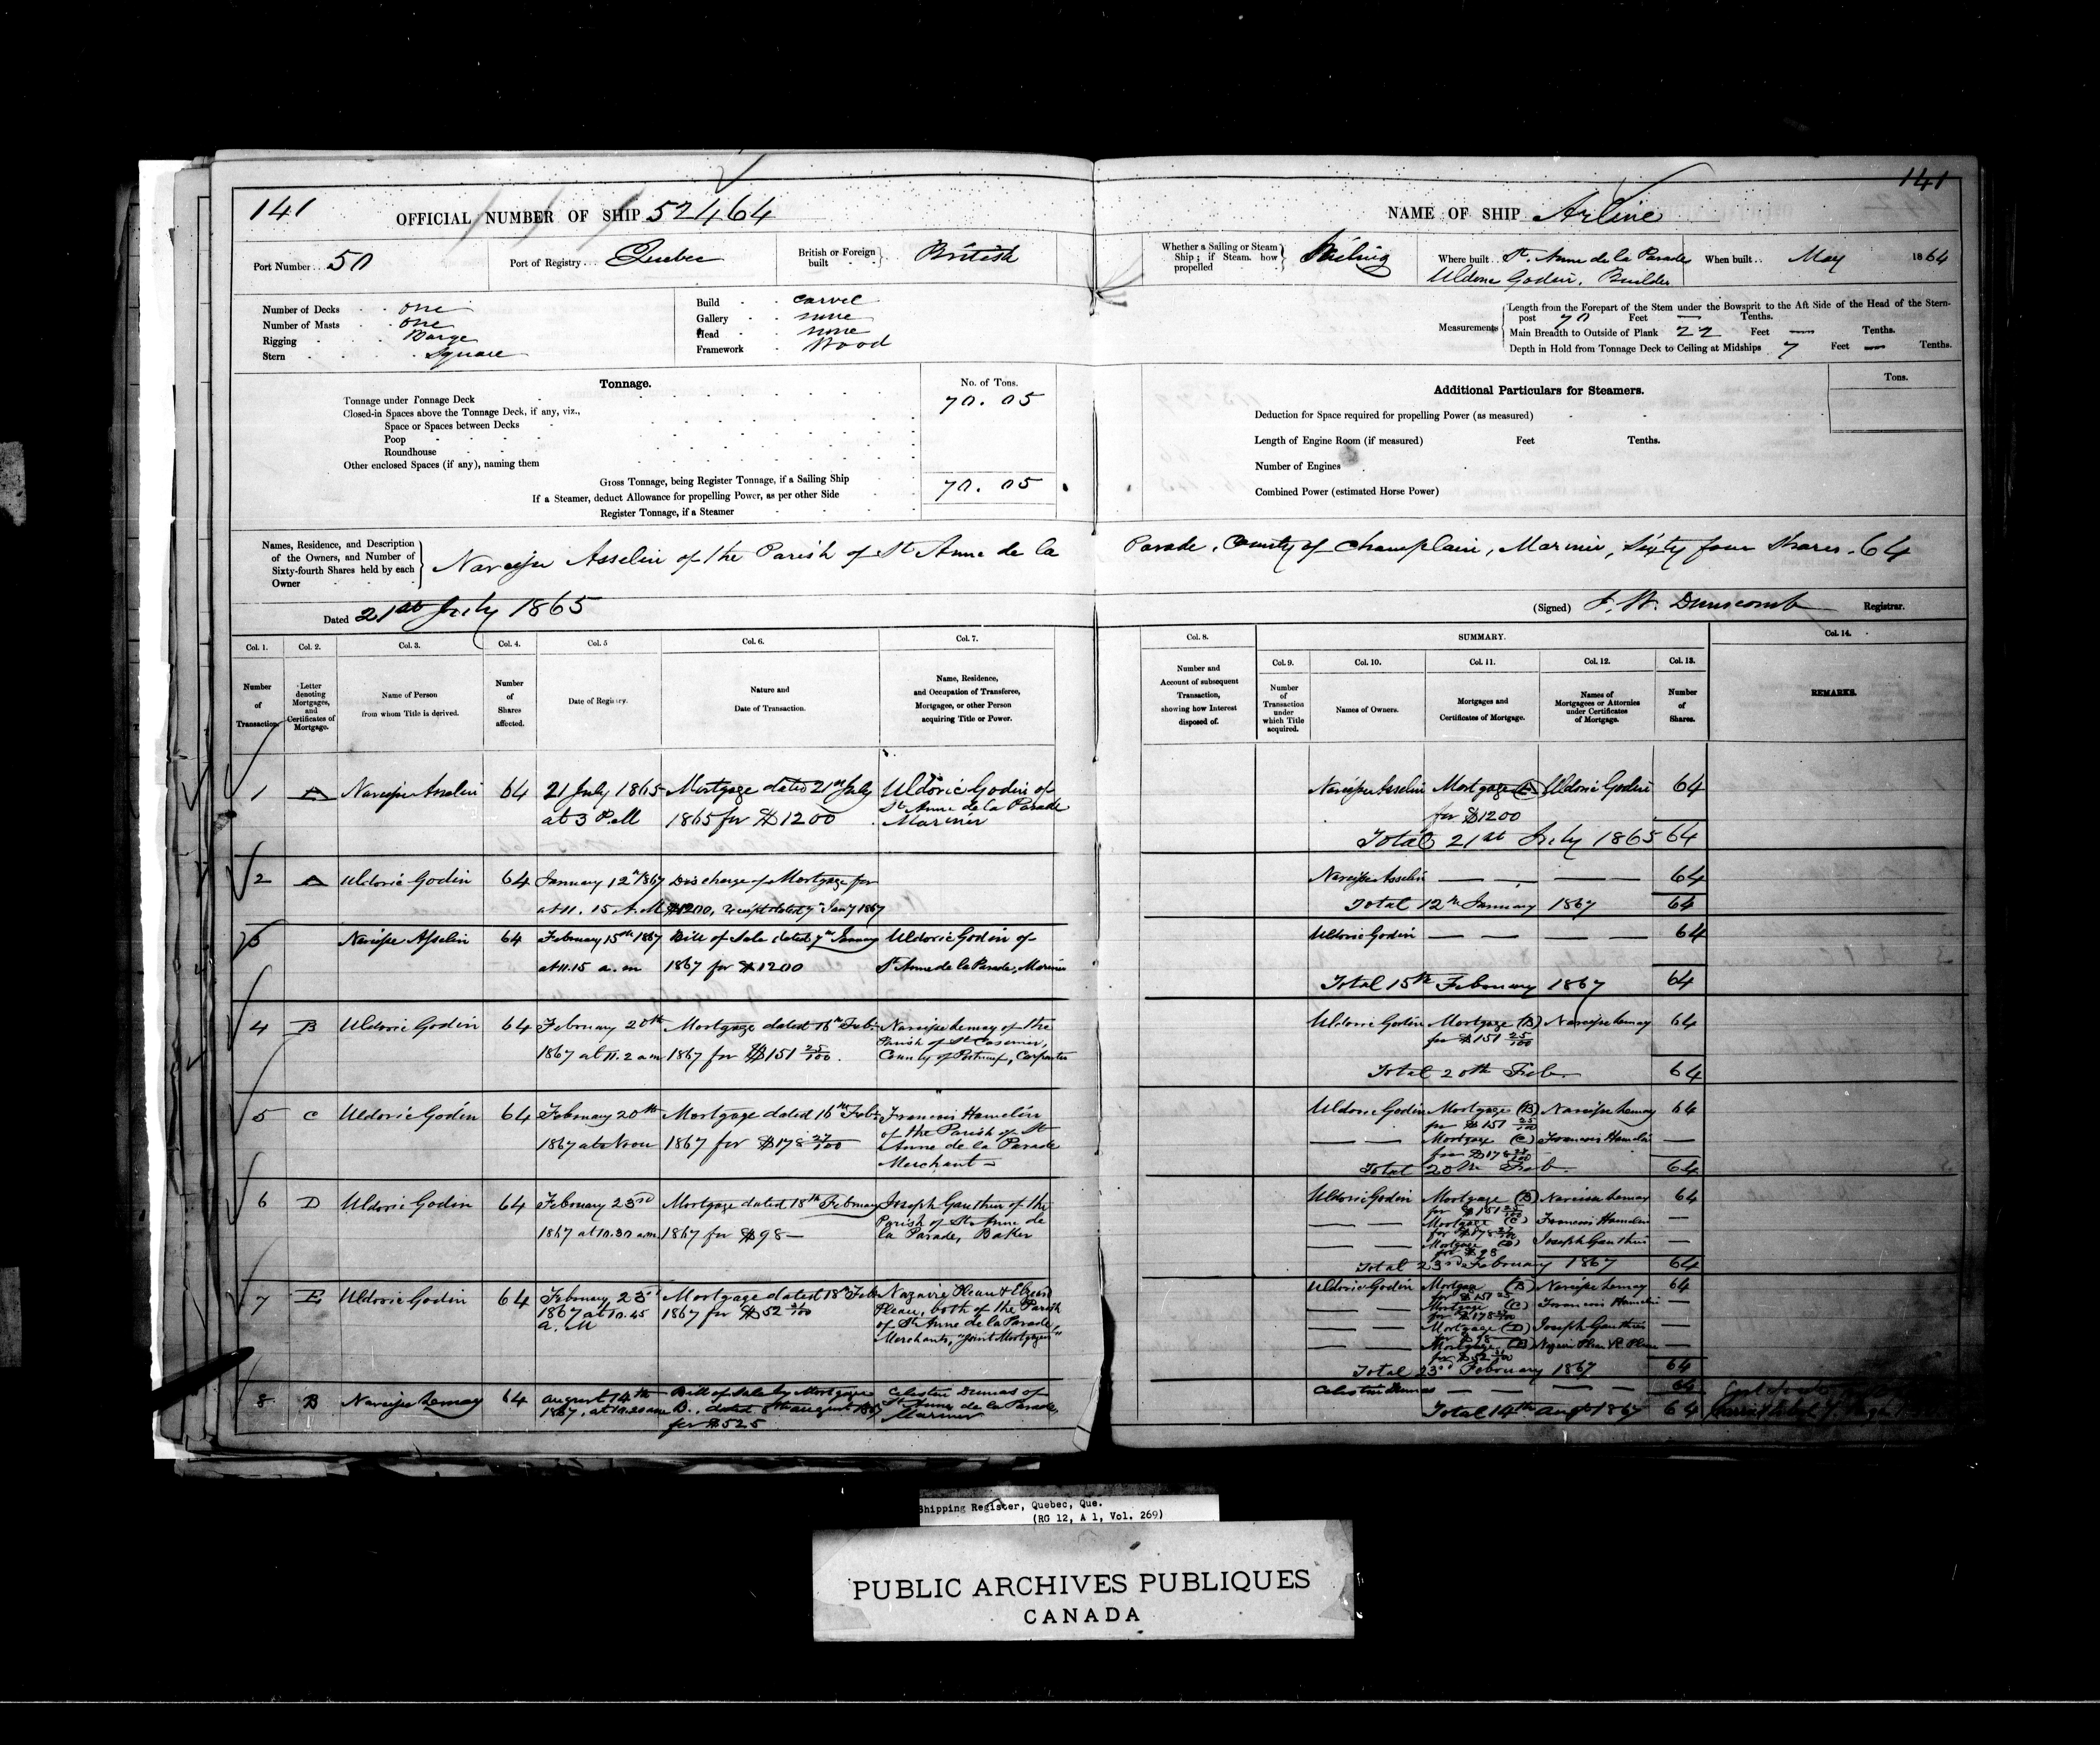 141
OFFICIAL NUMBER OF SHIP 52464
Port Number... 50
Port of Registry... Quebec
British or Foreign built British
Number of Decks one
Number of Masts one
Rigging Barge
Stern Square
Build carvel
Gallery none
Head none
Framework Wood
Tonnage.
No. of Tons.
Tonnage under Tonnage Deck 70.05
Closed-in Spaces above the Tonnage Deck, if any, viz.,
Space or Spaces between Decks
Poop
Roundhouse
Other enclosed Spaces (if any), naming them
Gross Tonnage, being Register Tonnage, if a Sailing Ship 70.05
If a Steamer, deduct Allowance for propelling Power, as per other Side
Register Tonnage, if a Steamer
141
NAME OF SHIP Arline
Whether a Sailing or Steam Ship; if Steam, how propelled Sailing
Where built.. St. Anne de la Parade
Uldoric Godin, Builder
When built.. May 1864
Measurements
Length from the Forepart of the Stem under the Bowsprit to the Aft Side of the Head of the Stern-
post 70 Feet — Tenths.
Main Breadth to Outside of Plank 22 Feet — Tenths.
Depth in Hold from Tonnage Deck to Ceiling at Midships 7 Feet — Tenths.
Additional Particulars for Steamers.
Tons.
Deduction for Space required for propelling Power (as measured)
Length of Engine Room (if measured) Feet Tenths.
Number of Engines
Combined Power (estimated Horse Power)
Names, Residence, and Description of the Owners, and Number of Sixty-fourth Shares held by each Owner
Narcisse Asselin of the Parish of St Anne de la Parade, County of Champlain, Mariner, Sixty four Shares. 64
Dated 21st July 1865
(Signed) J. W. Dunscomb Registrar.
Col. 1. Col. 2. Col. 3. Col. 4. Col. 5 Col. 6. Col. 7.
Number of Transaction.
Letter denoting Mortgages, and Certificates of Mortgage.
Name of Person from whom Title is derived.
Number of Shares affected.
Date of Registry.
Nature and Date of Transaction.
Name, Residence, and Occupation of Transferee, Mortgagee, or other Person acquiring Title or Power.
Col. 8. SUMMARY. Col. 14.
Col. 9. Col. 10. Col. 11. Col. 12. Col. 13.
Number and Account of subsequent Transaction, showing how Interest disposed of.
Number of Transaction under which Title acquired.
Names of Owners.
Mortgages and Certificates of Mortgage.
Names of Mortgagees or Attornies under Certificates of Mortgage.
Number of Shares.
REMARKS.
1 A Narcisse Asselin 64 21 July 1865 Mortgage dated 21st July Uldoric Godin of
at 3 P.M 1865 for $1200 St Anne de la Parade
Mariner
2 A Uldoric Godin 64 January 12th 1867 Discharge of Mortgage for
at 11.15 A.M $1200, receipt dated 7th Jany 1867
3 Narcisse Asselin 64 February 15th 1867 Bill of Sale dated 7th January Uldoric Godin of
at 11.15 a.m 1867 for $1200 St Anne de la Parade, Mariner
4 B Uldoric Godin 64 February 20th Mortgage dated 16th Feb. Narcisse Lemay of the
1867 at 11.2 a.m 1867 for $151 25/100. Parish of St Casimir,
County of Portneuf, Carpenter
5 C Uldoric Godin 64 February 20th Mortgage dated 16th Feb. Francois Hamelin
1867 at Noon 1867 for $178 27/100 of the Parish of St
Anne de la Parade
Merchant
6 D Uldoric Godin 64 February 23rd Mortgage dated 18th February Joseph Gauthier of the
1867 at 10.30 a.m 1867 for $98— Parish of St Anne de
la Parade, Baker
7 E Uldoric Godin 64 February 23rd Mortgage dated 18th Feb. Nazaire Pleau &
1867 at 10.45 1867 for $52 Pleau, both of the Parish
a.M of St Anne de la Parade,
Merchants, "Joint Mortgagees"
8 B Narcisse Lemay 64 august 14th Bill of Sale by Mortgagee Celestin Dumas of
1867, at 10.20 a.m B., dated 8th august 1867 St Anne de la Parade,
for $525 Mariner
Narcisse Asselin Mortgage (A) Uldoric Godin 64
for $1200
Total 21st July 1865 64
Narcisse Asselin — — — — 64
Total 12th January 1867 64
Uldoric Godin — — — — 64
Total 15th February 1867 64
Uldoric Godin Mortgage (B) Narcisse Lemay 64
for $151 25/100
Total 20th Feb. 64
Uldoric Godin Mortgage (B) Narcisse Lemay 64
for $151 25/100
— — Mortgage (C) Francois Hamelin —
for $178 27/100
Total 20th Feb. 64
Uldoric Godin Mortgage (B) Narcisse Lemay 64
for $151 25/100
— — Mortgage (C) Francois Hamelin —
for $178 27/100
— — Mortgage (D) Joseph Gauthier —
for $98
Total 23rd February 1867 64
Uldoric Godin Mortgage (B) Narcisse Lemay 64
for $151 25
— — Mortgage (C) Francois Hamelin —
for $178 27/100
— — Mortgage (D) Joseph Gauthier —
for $98
Mortgage (E) Nazaire Pleau & E. Pleau —
for $52
Total 23rd February 1867 64
Celestin Dumas — — — — 64
Total 14th augt 1867 64
Shipping Register, Quebec, Que.
(RG 12, A 1, Vol. 269)
PUBLIC ARCHIVES PUBLIQUES
CANADA